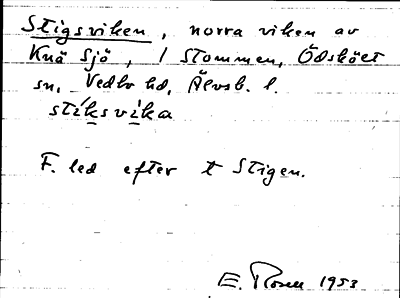 Stigsviken, norra viken av
Knä sjö, 1 Stommen, Ödsköet
sn, Vedbo hd, Älvsb. l.
stíksvìka
F. led efter t Stigen.
E. Rosen 1953